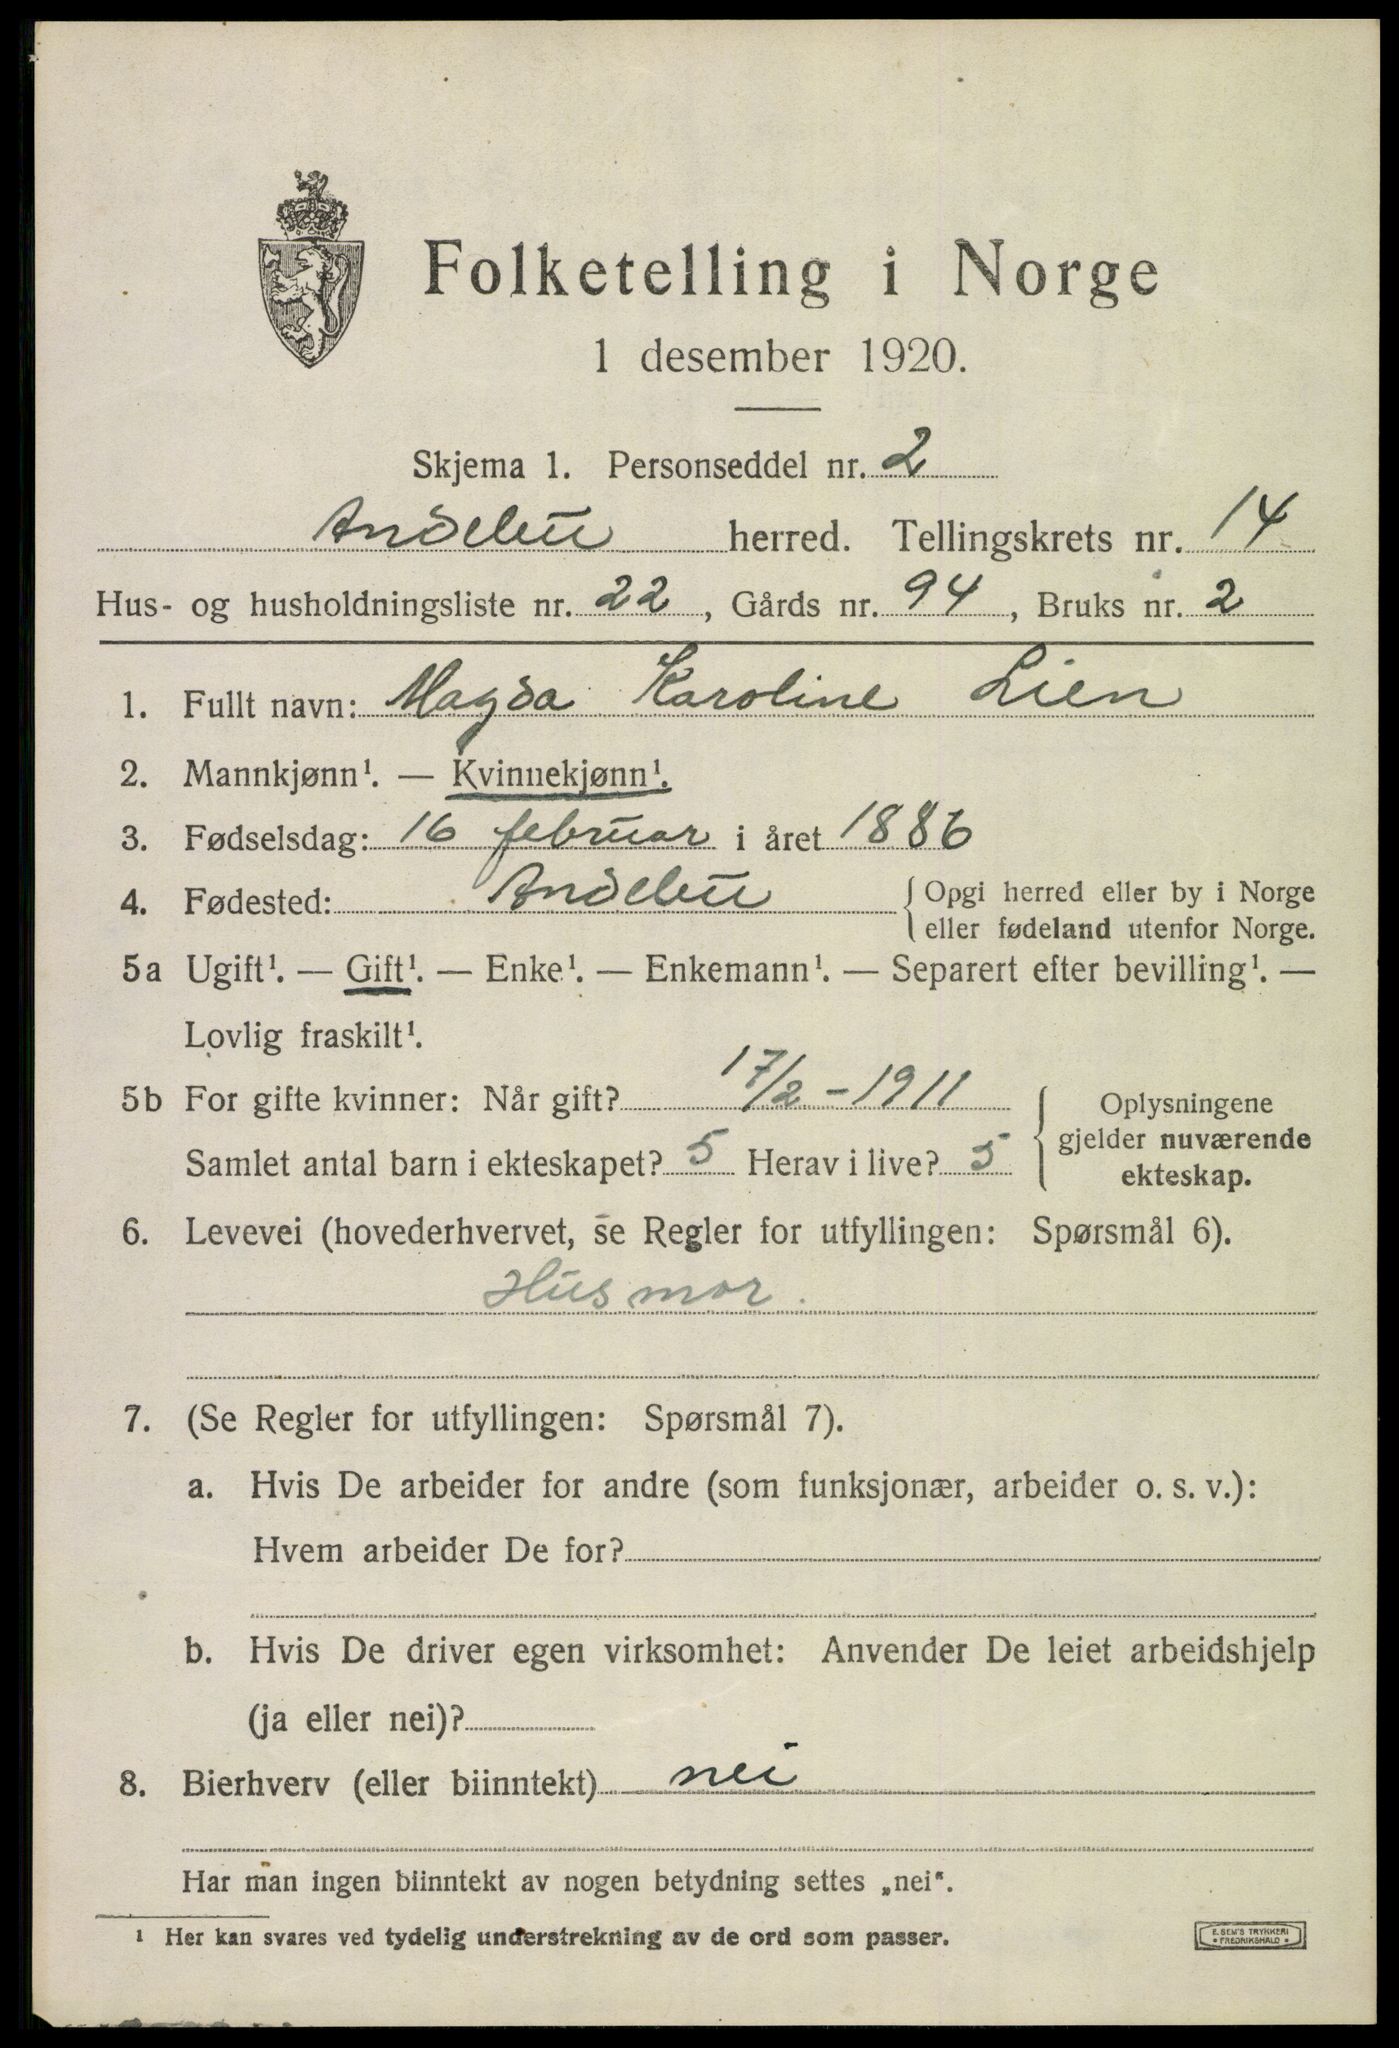 Folketelling i Norge
1 desember 1920.
Skjema 1. Personseddel nr. 2
Andebu herred. Tellingskrets nr. 14
Hus- og husholdningsliste nr. 22, Gårds nr. 94, Bruks nr. 2
1. Fullt navn: Magda Karoline Lien
2. Mannkjønn¹. — Kvinnekjønn¹.
3. Fødselsdag: 16 februar i året 1886
4. Fødested: Andebu { Opgi herred eller by i Norge
eller fødeland utenfor Norge.
5a Ugift¹. — Gift¹. — Enke¹. — Enkemann¹. — Separert efter bevilling¹. —
Lovlig fraskilt¹.
5b For gifte kvinner: Når gift? 17/2 - 1911 { Oplysningene
gjelder nuværende
Samlet antal barn i ekteskapet? 5 Herav i live? 5
ekteskap.
6. Levevei (hovederhvervet, se Regler for utfyllingen: Spørsmål 6).
Husmor.
7. (Se Regler for utfyllingen: Spørsmål 7).
a. Hvis De arbeider for andre (som funksjonær, arbeider o. s. v.):
Hvem arbeider De for?
b. Hvis De driver egen virksomhet: Anvender De leiet arbeidshjelp
(ja eller nei)?
8. Bierhverv (eller biinntekt) nei
Har man ingen biinntekt av nogen betydning settes „nei“.
¹ Her kan svares ved tydelig understrekning av de ord som passer.
E. SEM'S TRYKKERI
• FREDRIKSHALD •